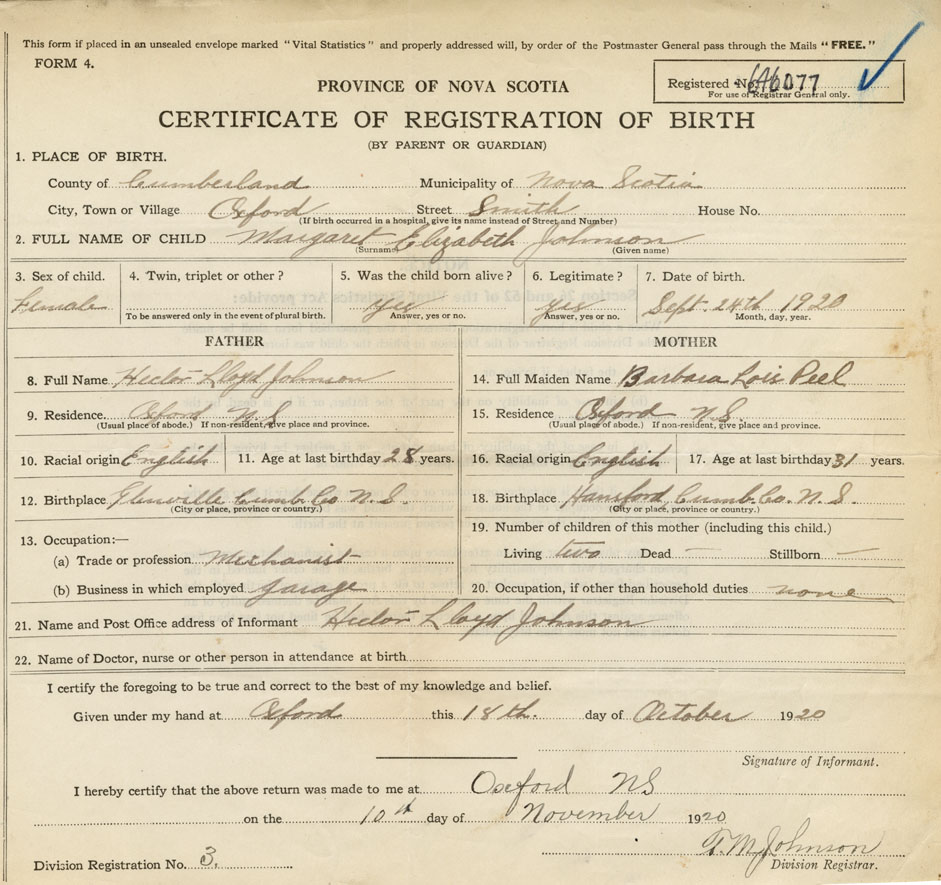 This form if placed in an unsealed envelope marked "Vital Statistics" and properly addressed will, by order of the Postmaster General pass through the Mails "FREE."
FORM 4.
Registered No. 077
For use of Registrar General only.
PROVINCE OF NOVA SCOTIA
CERTIFICATE OF REGISTRATION OF BIRTH
(BY PARENT OR GUARDIAN)
1. PLACE OF BIRTH.
County of Cumberland Municipality of Nova Scotia
City, Town or Village Oxford Street Smith House No.
(If birth occurred in a hospital, give its name instead of Street and Number)
2. FULL NAME OF CHILD Margaret Elizabeth Johnson
(Surname) (Given name)
3. Sex of child. 4. Twin, triplet or other? 5. Was the child born alive? 6. Legitimate? 7. Date of birth.
Female yes yes Sept. 24th 1920
To be answered only in the event of plural birth. Answer, yes or no. Answer, yes or no. Month, day, year.
FATHER MOTHER
8. Full Name Hector Lloyd Johnson 14. Full Maiden Name Barbara Lois Peel
9. Residence. Oxford N.S 15. Residence Oxford N.S.
(Usual place of abode.) If non-resident, give place and province. (Usual place of abode.) If non-resident, give place and province.
10. Racial origin English 11. Age at last birthday 28 years. 16. Racial origin English 17. Age at last birthday 31 years.
12. Birthplace Glenville Cumb. Co N.S. 18. Birthplace Hansford Cumb. Co. N.S.
(City or place, province or country.) (City or place, province or country.)
13. Occupation:— 19. Number of children of this mother (including this child.)
(a) Trade or profession Mechanist Living two Dead — Stillborn —
(b) Business in which employed garage 20. Occupation, if other than household duties none
21. Name and Post Office address of Informant Hector Lloyd Johnson
22. Name of Doctor, nurse or other person in attendance at birth
I certify the foregoing to be true and correct to the best of my knowledge and belief.
Given under my hand at Oxford this 18th. day of October 1920
Signature of Informant.
I hereby certify that the above return was made to me at Oxford NS
on the 10th day of November 1920
T. M. Johnson
Division Registration No. 3. Division Registrar.